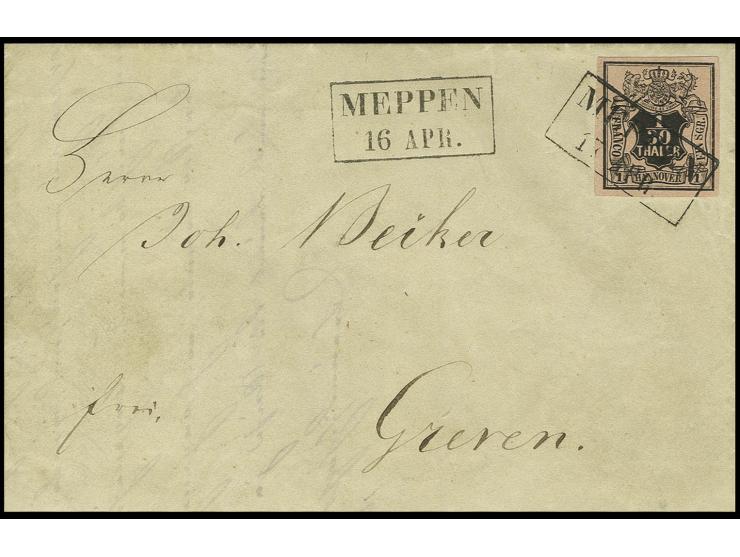 MEPPEN
16 APR.
FRANCO
1
30
THALER
SGR.
1 HANNOVER 1
Herrn
Joh. Becker
frei.
Greven.